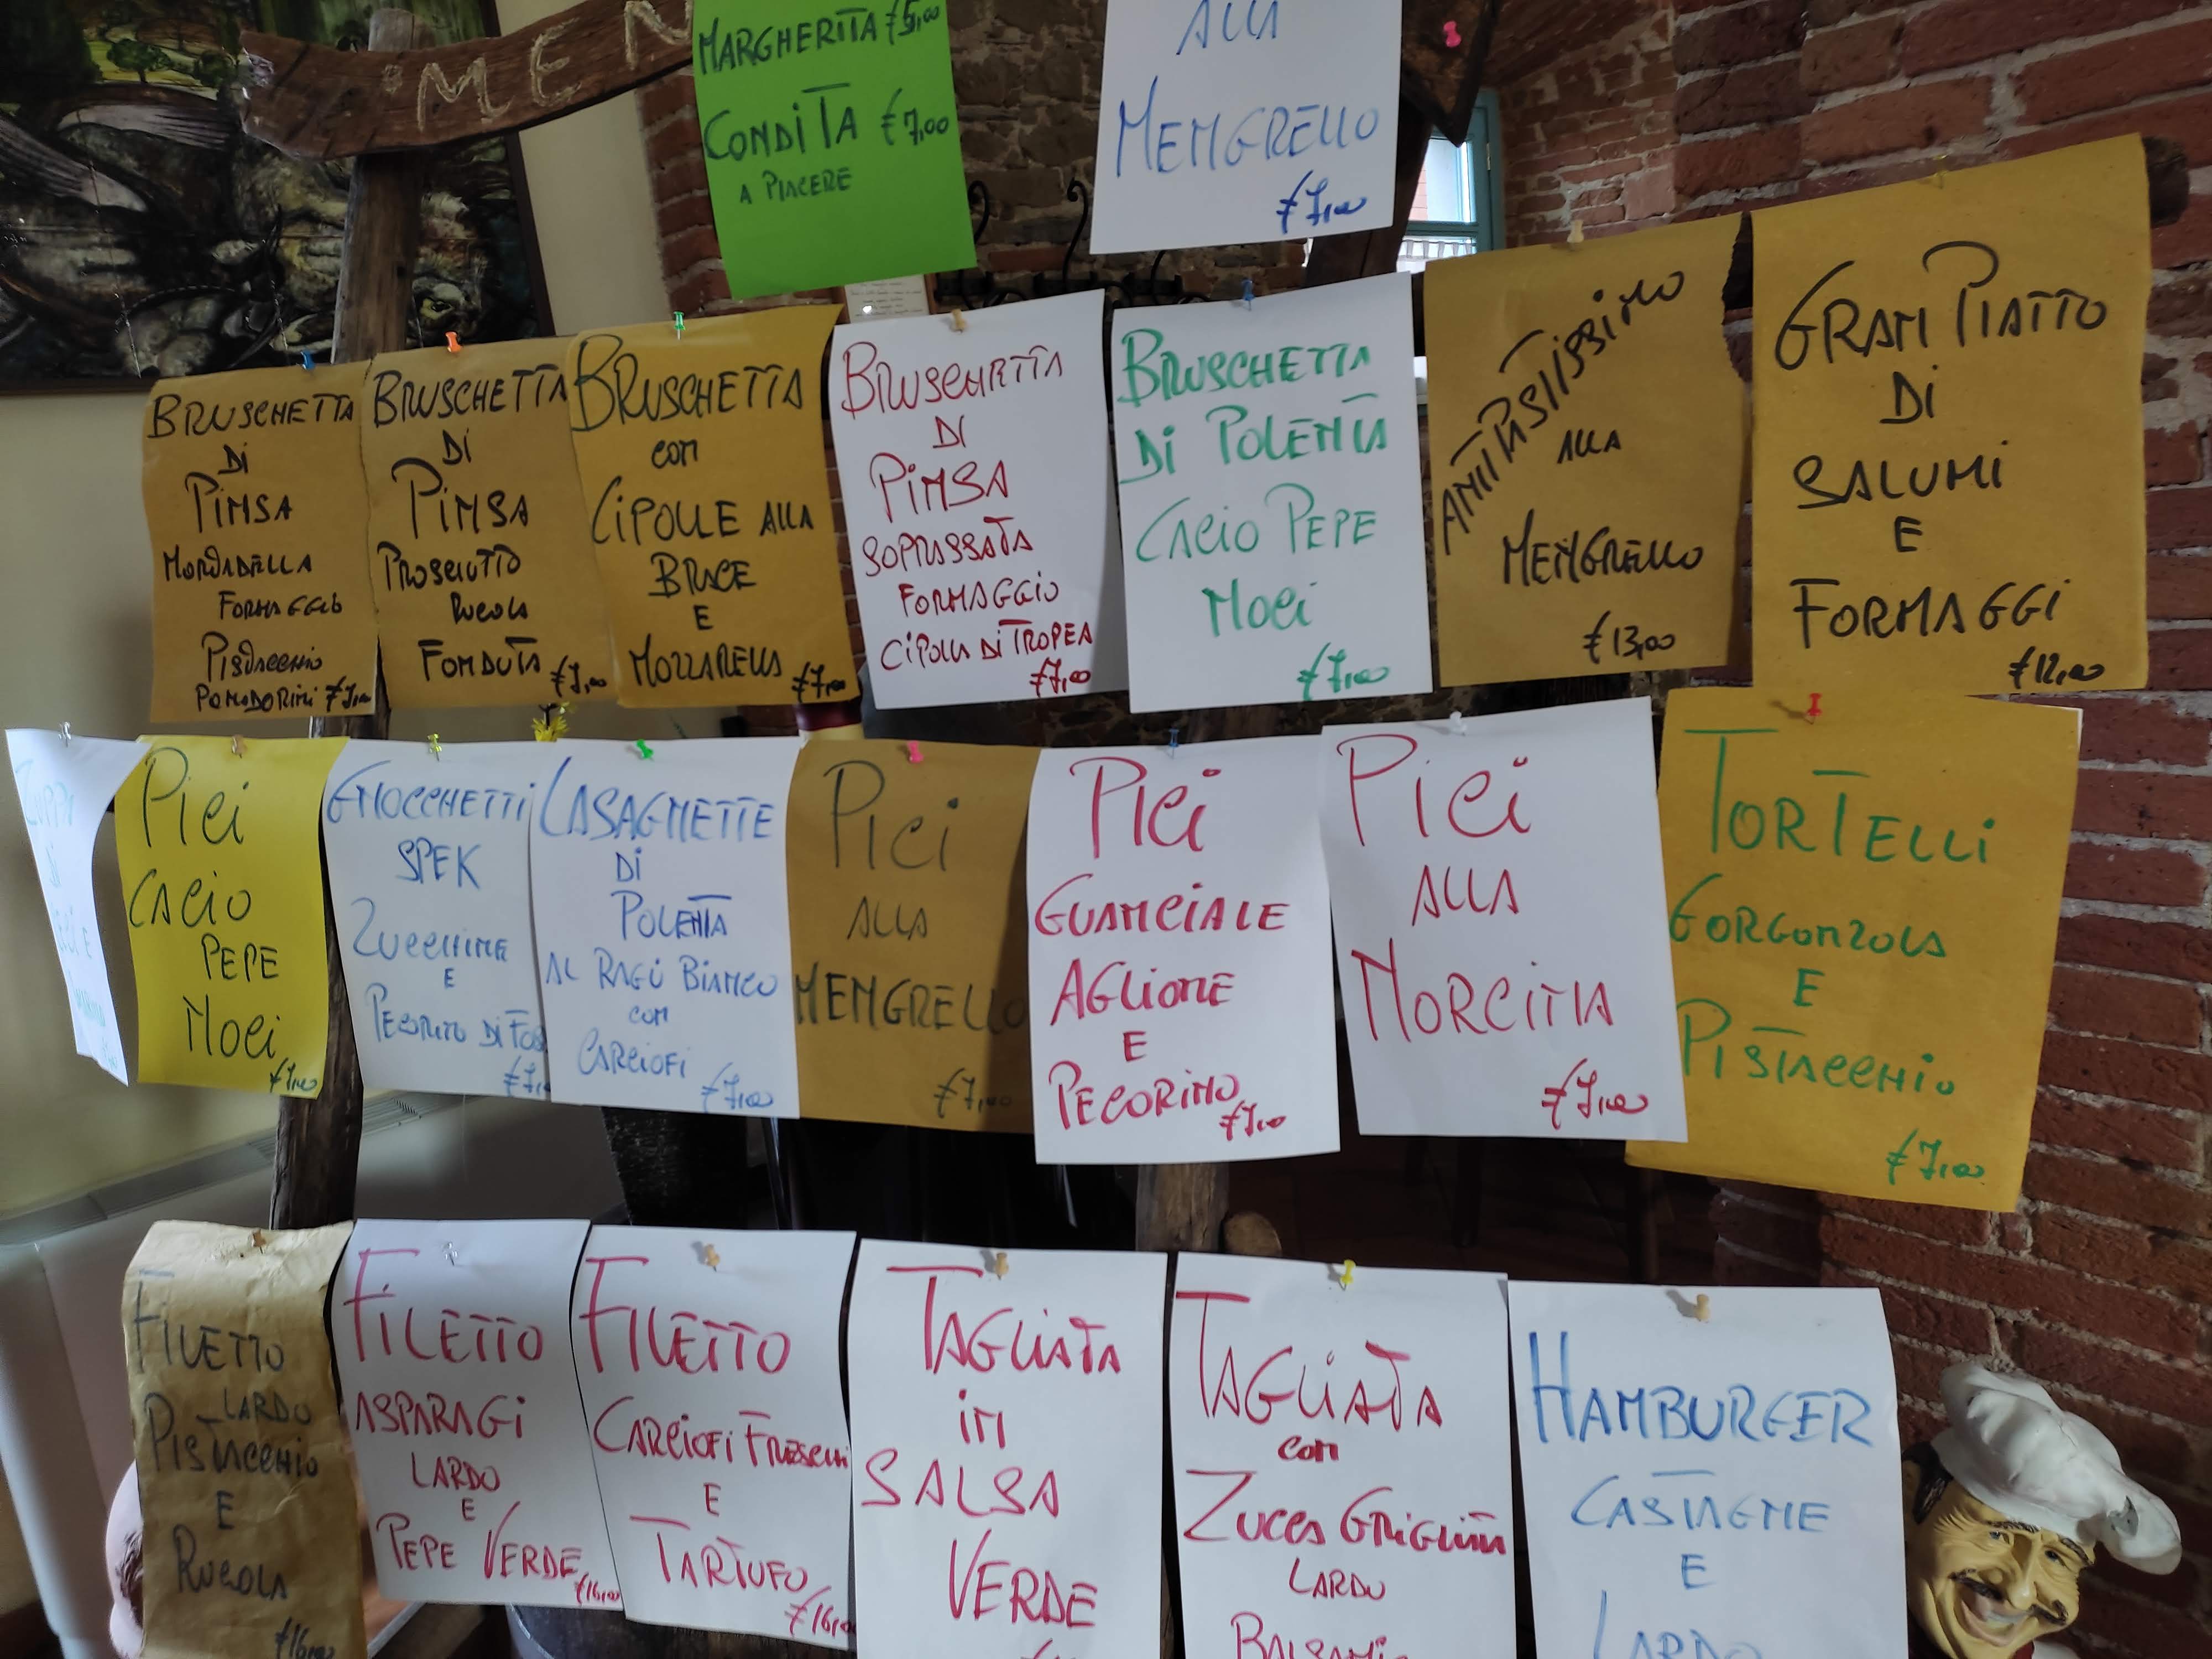 MEN
MARGHERITA €5,00
CONDITA €7,00
A PIACERE
ALLA
MENGRELLO
€7,00
BRUSCHETTA
DI
PINSA
MORTADELLA
FORMAGGIO
PISTACCHIO
POMODORINI €7,00
BRUSCHETTA
DI
PINSA
PROSCIUTTO
RUCOLA
FONDUTA €7,00
BRUSCHETTA
CON
CIPOLLE ALLA
BRACE
E
MOZZARELLA €7,00
BRUSCHETTA
DI
PINSA
SOPRASSATA
FORMAGGIO
CIPOLLA DI TROPEA
€7,00
BRUSCHETTA
DI POLENTA
CACIO PEPE
NOCI
€7,00
ANTIPASTISSIMO
ALLA
MENGRELLO
€13,00
GRAN PIATTO
DI
SALUMI
E
FORMAGGI
€12,00
ZUPPA
DI
PICI
CACIO
PEPE
NOCI
€7,00
GNOCCHETTI
SPEK
ZUCCHINE
E
PECORINO DI FOS
€7,
LASAGNETTE
DI
POLENTA
AL RAGÙ BIANCO
CON
CARCIOFI
€7,00
PICI
ALLA
MENGRELLO
€7,00
PICI
GUANCIALE
AGLIONE
E
PECORINO
€7,00
PICI
ALLA
NORCINA
€7,00
TORTELLI
GORGONZOLA
E
PISTACCHIO
€7,00
FILETTO
LARDO
PISTACCHIO
E
RUCOLA
€16,00
FILETTO
ASPARAGI
LARDO
E
PEPE VERDE
€16,00
FILETTO
CARCIOFI FRESCHI
E
TARTUFO
€16,00
TAGLIATA
IN
SALSA
VERDE
TAGLIATA
CON
ZUCCA GRIGLIATA
LARDO
BALSAMI
HAMBURGER
CASTAGNE
E
LARDO